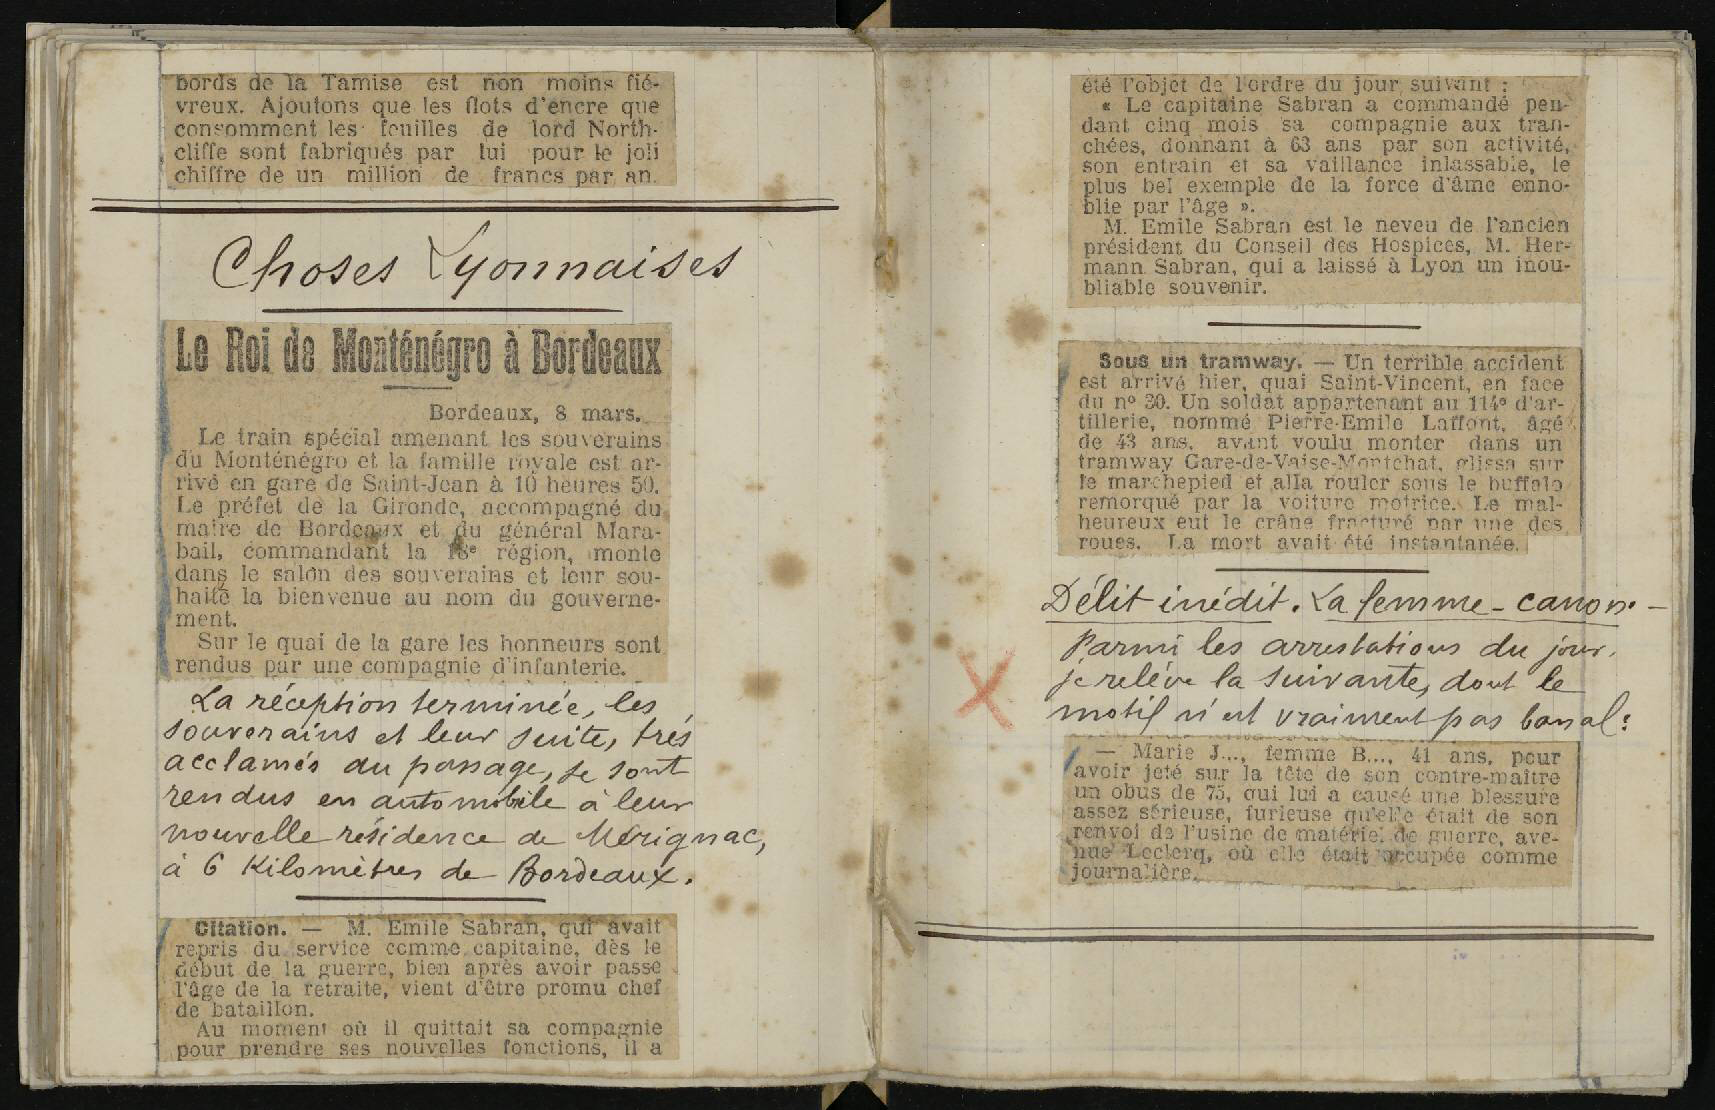 bords de la Tamise est non moins fié-
vreux. Ajoutons que les flots d'encre que
consomment les feuilles de lord North-
cliffe sont fabriqués par lui pour le joli
chiffre de un million de francs par an.
Choses Lyonnaises
Le Roi de Monténégro à Bordeaux
Bordeaux, 8 mars.
Le train spécial amenant les souverains
du Monténégro et la famille royale est ar-
rivé en gare de Saint-Jean à 10 heures 50.
Le préfet de la Gironde, accompagné du
maire de Bordeaux et du général Mara-
bail, commandant la 18e région, monte
dans le salon des souverains et leur sou-
haite la bienvenue au nom du gouverne-
ment.
Sur le quai de la gare les honneurs sont
rendus par une compagnie d'infanterie.
La réception terminée, les
souverains et leur suite, très
acclamés au passage, se sont
rendus en automobile à leur
nouvelle résidence de Mérignac,
à 6 Kilomètres de Bordeaux.
Citation. — M. Emile Sabran, qui avait
repris du service comme capitaine, dès le
début de la guerre, bien après avoir passé
l'âge de la retraite, vient d'être promu chef
de bataillon.
Au moment où il quittait sa compagnie
pour prendre ses nouvelles fonctions, il a
été l'objet de l'ordre du jour suivant :
« Le capitaine Sabran a commandé pen-
dant cinq mois sa compagnie aux tran-
chées, donnant à 63 ans par son activité,
son entrain et sa vaillance inlassable, le
plus bel exemple de la force d'âme enno-
blie par l'âge ».
M. Emile Sabran est le neveu de l'ancien
président du Conseil des Hospices, M. Her-
mann Sabran, qui a laissé à Lyon un inou-
bliable souvenir.
Sous un tramway. — Un terrible accident
est arrivé hier, quai Saint-Vincent, en face
du n° 30. Un soldat appartenant au 114e d'ar-
tillerie, nommé Pierre-Emile Laffont, âgé
de 43 ans, avant voulu monter dans un
tramway Gare-de-Vaise-Montchat, glissa sur
le marchepied et alla rouler sous le buffalo
remorqué par la voiture motrice. Le mal-
heureux eut le crâne fracturé par une des
roues. La mort avait été instantanée.
Délit inédit. La femme-canon. —
Parmi les arrestations du jour,
je relève la suivante, dont le
motif n'est vraiment pas banal :
— Marie J..., femme B..., 41 ans, pour
avoir jeté sur la tête de son contre-maître
un obus de 75, qui lui a causé une blessure
assez sérieuse, furieuse qu'elle était de son
renvoi de l'usine de matériel de guerre, ave-
nue Leclerq, où elle était occupée comme
journalière.